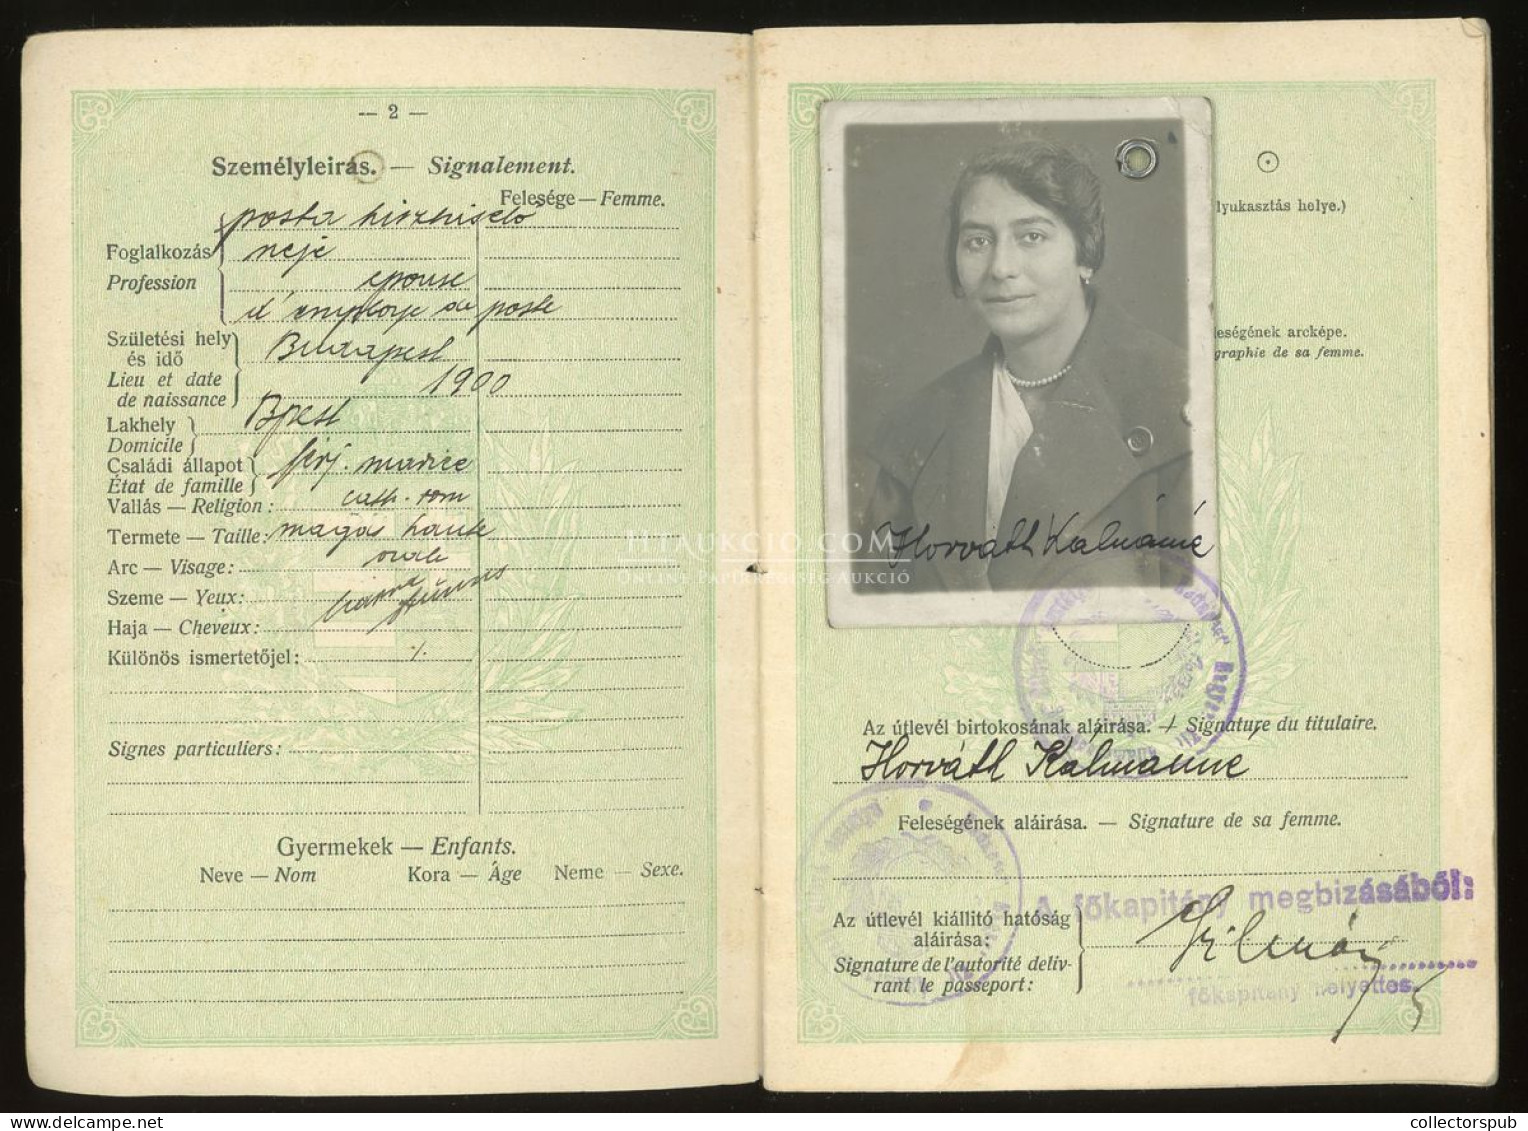 — 2 —
Személyleirás. — Signalement.
Felesége — Femme.
posta
Foglalkozás neje
Profession epouse
d'employe de poste
Születési hely Budapest
és idő
Lieu et date 1900
de naissance
Lakhely Bpest
Domicile
Családi állapot férj. mariée
État de famille
Vallás — Religion: cath. rom
Termete — Taille: magas haute
Arc — Visage: ovale
Szeme — Yeux:
Haja — Cheveux:
Különös ismertetőjel: ·/.
Signes particuliers:
Gyermekek — Enfants.
Neve — Nom Kora — Âge Neme — Sexe.
lyukasztás helye.)
leségének arcképe.
graphie de sa femme.
Horváth Kálmánné
HTAUKCIO.COM
ONLINE PAPÍRRÉGISÉG AUKCIÓ
Az útlevél birtokosának aláirása. — Signature du titulaire.
Horváth Kálmánné
Feleségének aláirása. — Signature de sa femme.
A főkapitány megbizásából:
Az útlevél kiállitó hatóság
aláirása:
Signature de l'autorité deliv-
rant le passeport:
főkapitány helyettes.
collectorspub.com